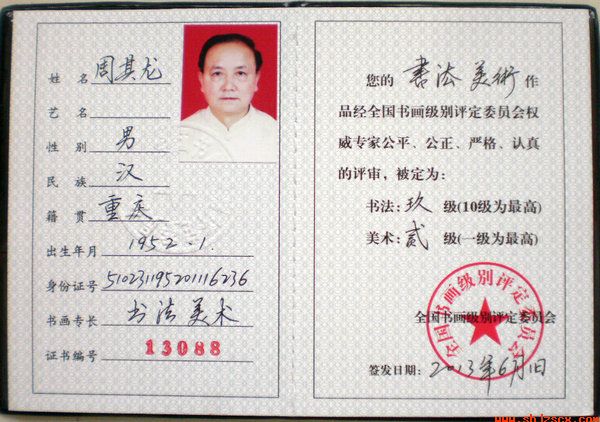 姓 名 周其龙
艺 名
性 别 男
民 族 汉
籍 贯 重庆
出生年月 1952.1.
身份证号 510231195201116236
书画专长 书法美术
证书编号 13088
您的 书法美術 作
品经全国书画级别评定委员会权
威专家公平、公正、严格、认真
的评审，被定为：
书法：玖 级(10级为最高)
美术：贰 级(一级为最高)
全国书画级别评定委员会
全国书画级别评定委员会
签发日期：2013年6月1日